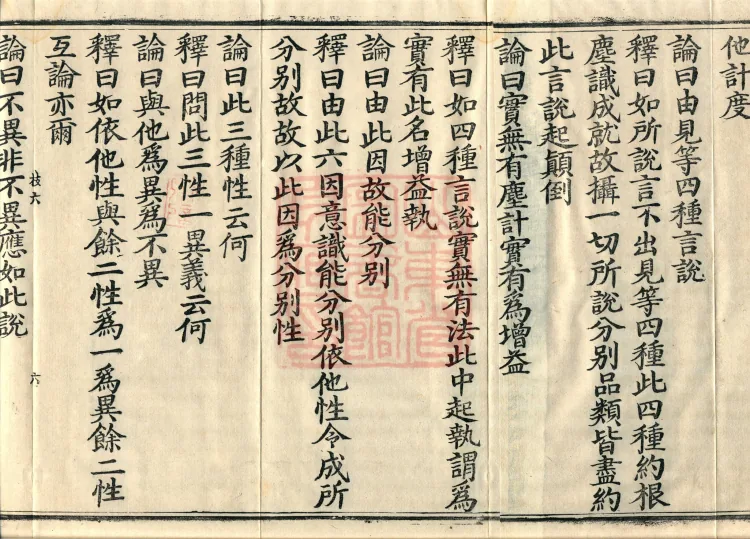 他計度
論曰由見等四種言說
釋曰如所說言不出見等四種此四種約根
塵識成就故攝一切所說分別品類皆盡約
此言說起顛倒
論曰實無有塵計實有為增益
釋曰如四種言說實無有法此中起執謂為
實有此名增益執
論曰由此因故能分別
釋曰由此六因意識能分別依他性令成所
分別故故以此因為分別性
論曰此三種性云何
釋曰問此三性一異義云何
論曰與他為異為不異
釋曰如依他性與餘二性為一為異餘二性
互論亦爾
枝六
六
論曰不異非不異應如此說